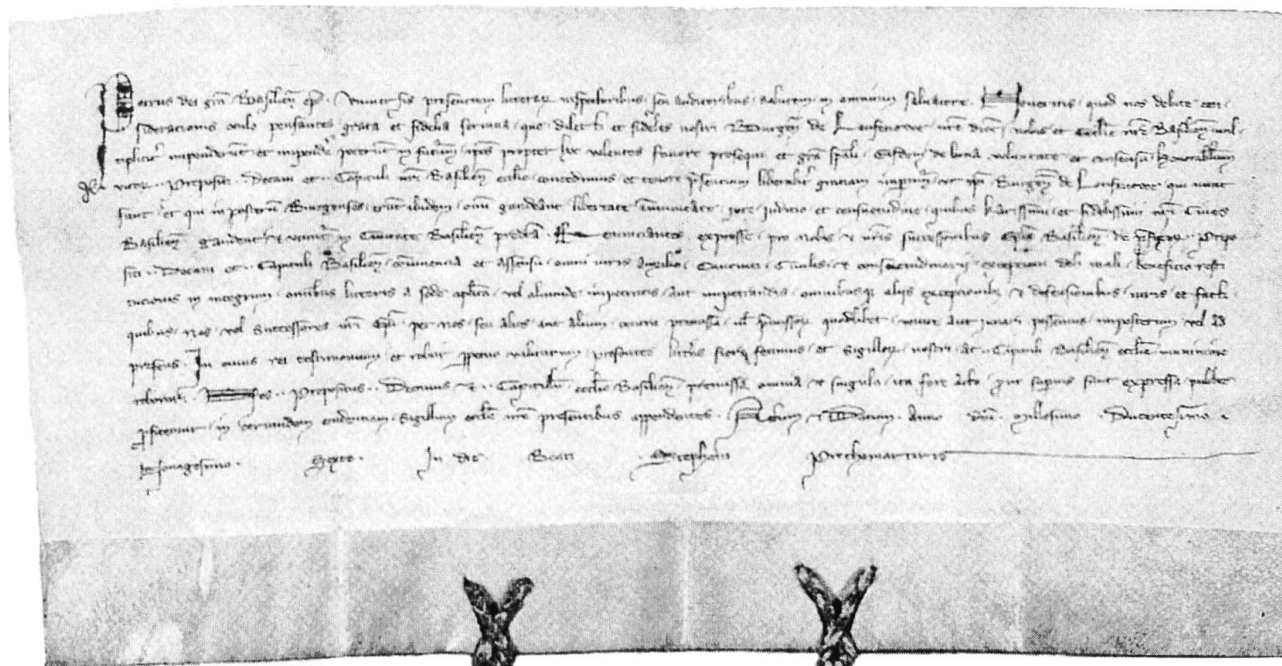 Petrus dei gra Basilien eps . Univsis presencium literar inspectoribus seu auditoribus salutem in omnium salvatore . Noveritis quod nos debite con
siderationis oculo pensantes grata et fidelia servicia que dilecti et fideles nostri Burgen de Loufenowe nre dioc nobis et Ecclie nre Basilien mul
tiplicit impenderunt et impende poterunt in futurum ipsos propter hec volentes favore prosequi et gra spali . Eisdem de bona voluntate et consensu honorabilium
viror . . Prepositi . Decani et . . Capituli nre Basilien ecclie concedimus et tenore psencium liberalit graciam impertimur ut ipsi Burgen de Loufenowe qui nunc
sunt et qui in posterum Burgenses erunt ibidem omni gaudeant libertate immunitate iure iudicio et consuetudine quibus karissimi et fidelissimi nri Cives
Basilien gaudent et utuntur in Civitate Basilien predcam . Renunciantes expresse pro nobis et nris successoribus Epis Basilien de Prepo
siti . . Decani et . . Capituli Basilien et assensu omni iuris auxilio Canonici Civilis et consuetudinarii excepcioni doli mali beneficio resti
tucionis in integrum omnibus literis a sede aplica vel aliunde impetratis aut impetrandis omnibusq aliis excepcionibus et defensionibus iuris et facti
quibus nos vel successores nri Epi per nos seu alios aut alium contra premissa vel pmissor quodlibet venire aut iuvari possemus inposterum vel ad
presens . In cuius rei testimonium et robur ppetuo valiturum presentes litras fieri fecimus et Sigillor nostri ac . . Capituli Basilien ecclie munimine
roborari . Nos . . Prepositus . . Decanus et . . Capitulum ecclie Basilien premissa omnia et singula ita fore acta prout supius sunt expressa publice
pfitemur in evidenciam Sigillum ecclie nre presentibus appendentes . Actum et Datum Anno dni Millesimo . Ducentesimo .
Nonagesimo . Sexto . In die Beati Stephani Prothomartiris